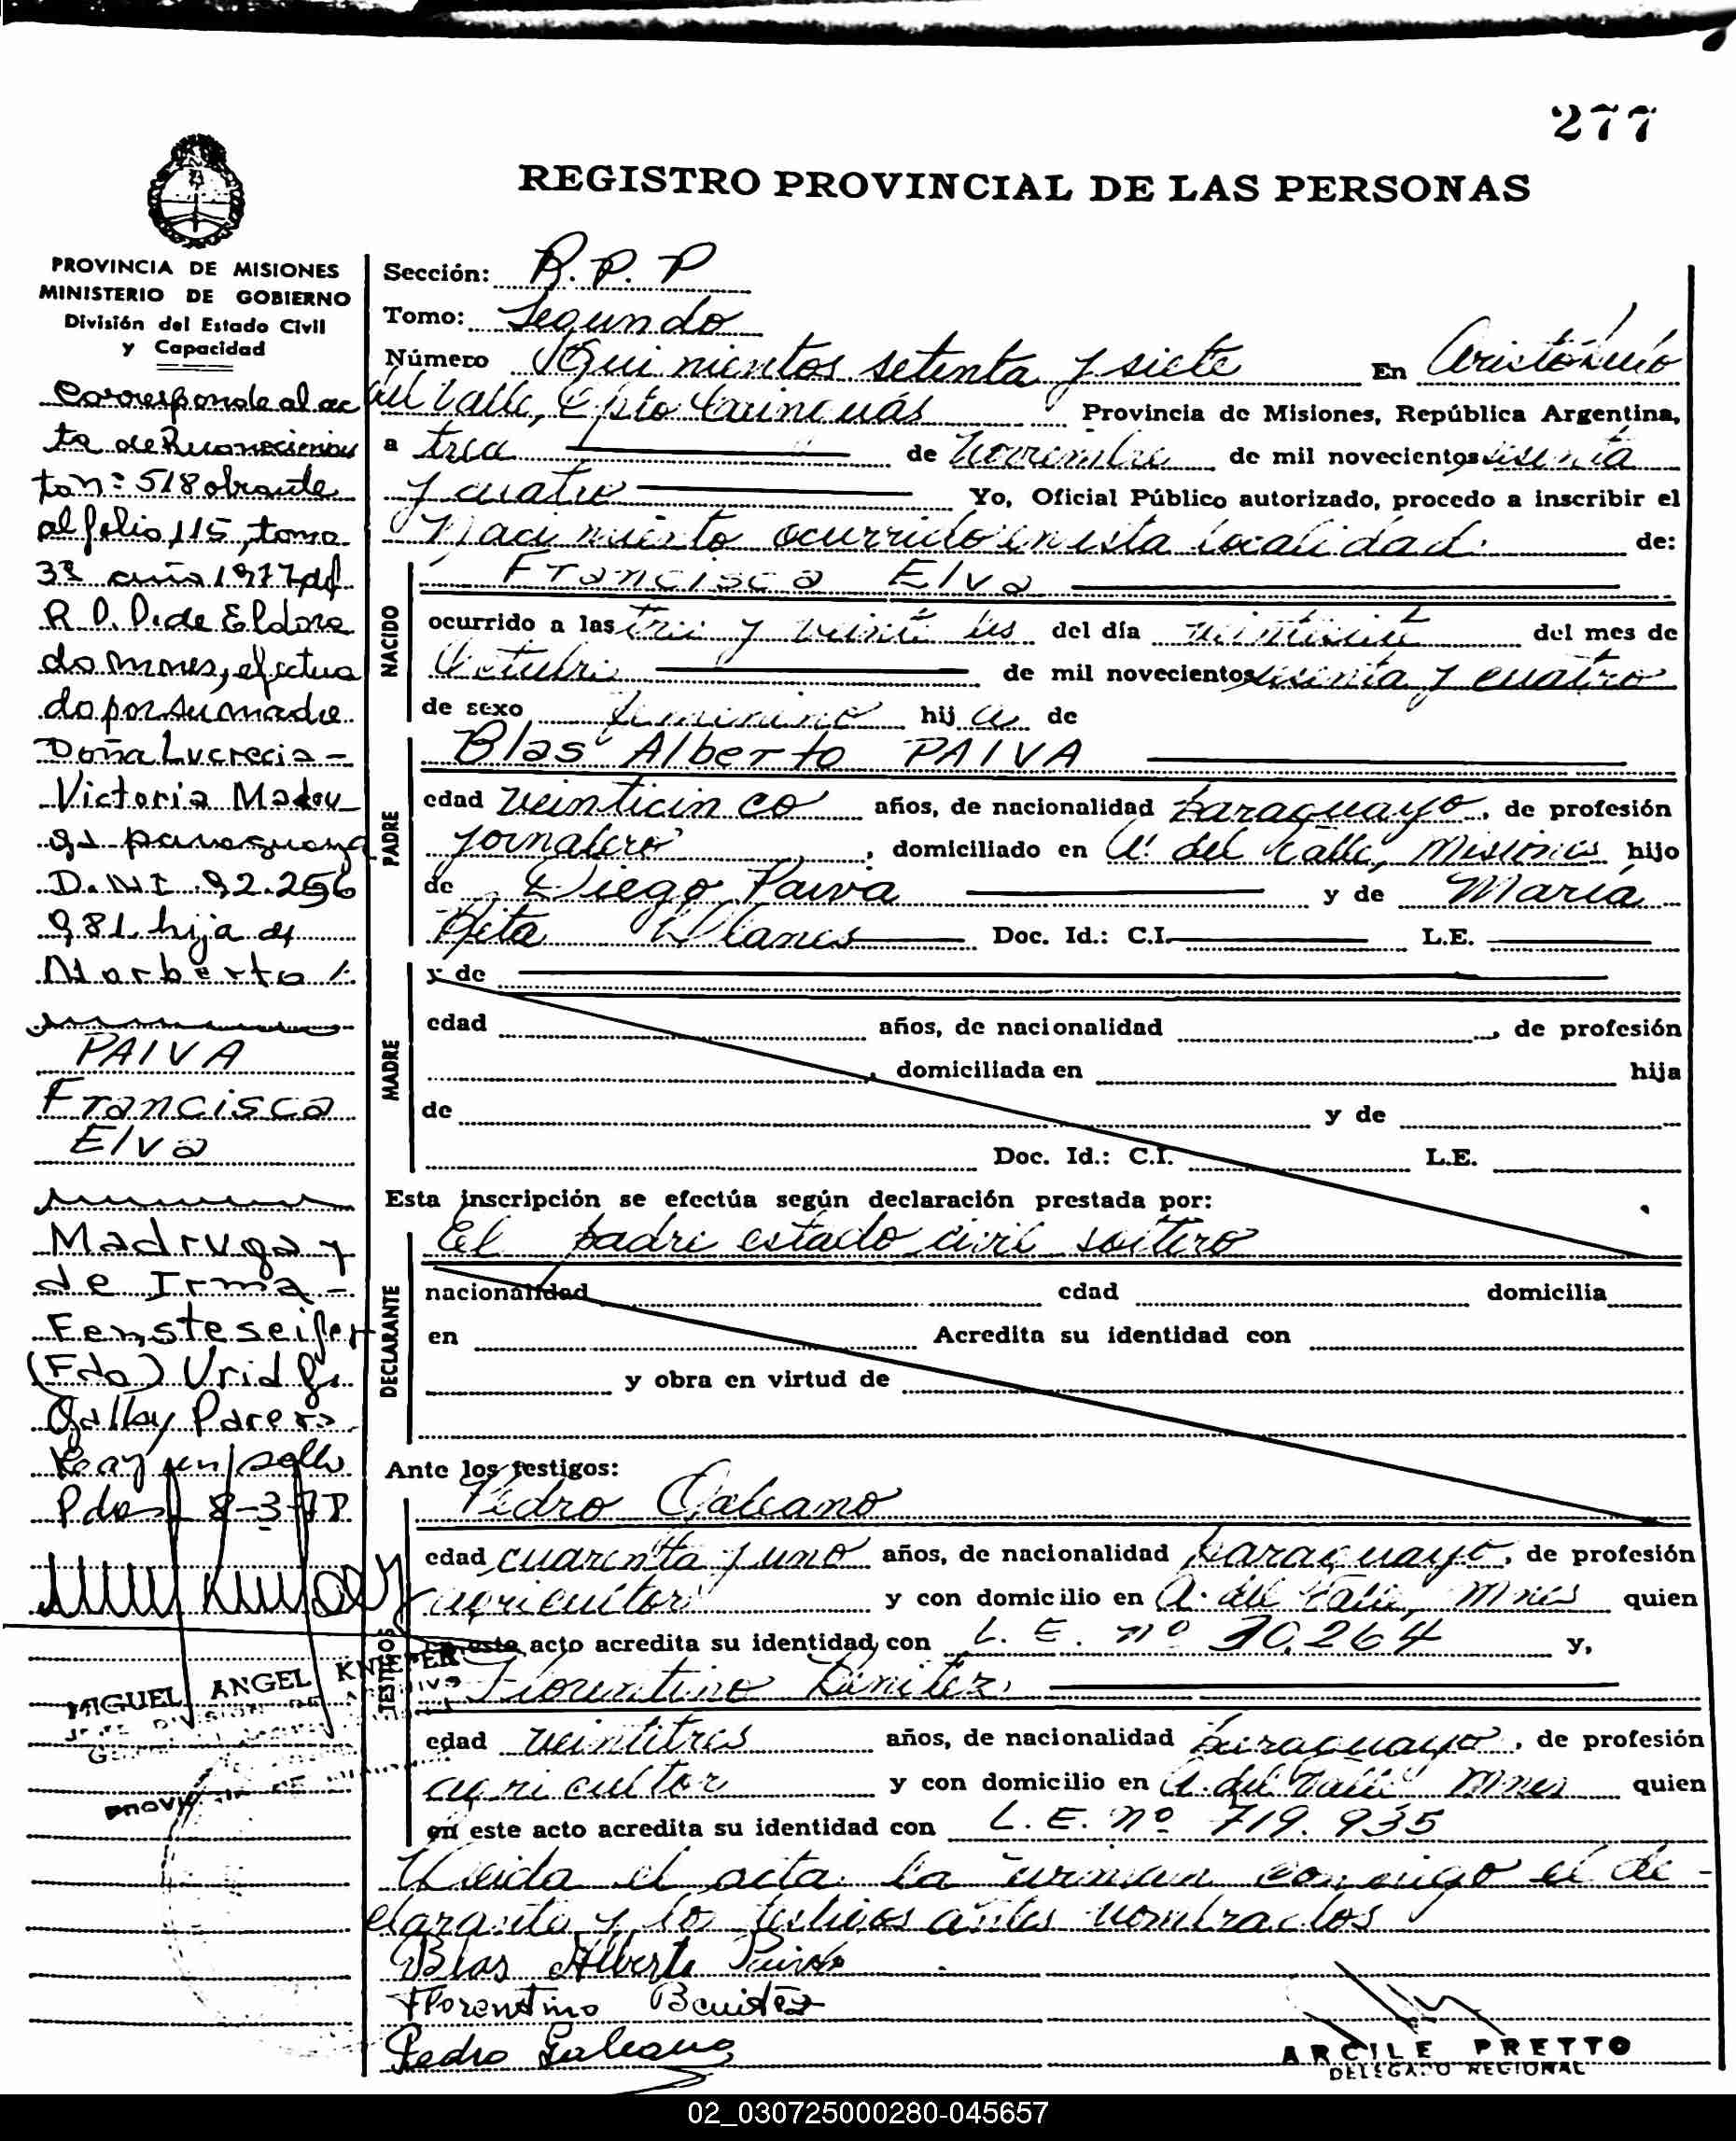 277
REGISTRO PROVINCIAL DE LAS PERSONAS
PROVINCIA DE MISIONES
MINISTERIO DE GOBIERNO
División del Estado Civil
y Capacidad
Corresponde al ac
ta de Reconocimien
to nº 518 obrante
al folio 115, tomo
3º año 1977 del
R.P.P. de Eldora
do Mnes, efectua
do por su madre
Doña Lucrecia -
Victoria Madru
ga paraguaya
D.N.I. 92.256
981 hija de
Norberto
PAIVA
Francisca
Elva
Madruga y
de Irma -
Fensteseifer
(Fdo)
Hay un sello
Pdas 8-3-78
MIGUEL ANGEL KNIEPER
Sección: R.P.P
Tomo: Segundo
Número Quinientos setenta y siete En Aristóbulo
del Valle, Dpto Cainguás Provincia de Misiones, República Argentina,
a tres de Noviembre de mil novecientos sesenta
y cuatro Yo, Oficial Público autorizado, procedo a inscribir el
Nacimiento ocurrido en esta localidad de:
NACIDO
Francisca Elva
ocurrido a las tres y veinte hs del día veintisiete del mes de
Octubre de mil novecientos sesenta y cuatro
de sexo femenino hija de
PADRE
Blas Alberto PAIVA
edad veinticinco años, de nacionalidad paraguayo, de profesión
jornalero, domiciliado en A. del Valle, Misiones hijo
de Diego Paiva y de María
Rita Llanes Doc. Id.: C.I. L.E.
MADRE
y de
edad años, de nacionalidad , de profesión
, domiciliada en hija
de y de
Doc. Id.: C.I. L.E.
Esta inscripción se efectúa según declaración prestada por:
DECLARANTE
El padre estado civil soltero
nacionalidad edad domicilia
en Acredita su identidad con
y obra en virtud de
Ante los testigos:
TESTIGOS
Pedro Galeano
edad cuarenta y uno años, de nacionalidad paraguayo, de profesión
agricultor y con domicilio en A. del Valle, Mnes quien
en este acto acredita su identidad con L.E. nº 30.264 y,
Florentino Benitez
edad veintitres años, de nacionalidad paraguayo, de profesión
agricultor y con domicilio en A. del Valle Mnes quien
en este acto acredita su identidad con L.E. nº 719.935
Leida el acta la firman conmigo el de-
clarante y los testigos antes nombrados
Blas Alberto Paiva
Florentino Benitez
Pedro Galeano
ARCILE PRETTO
DELEGADO REGIONAL
02_030725000280-045657